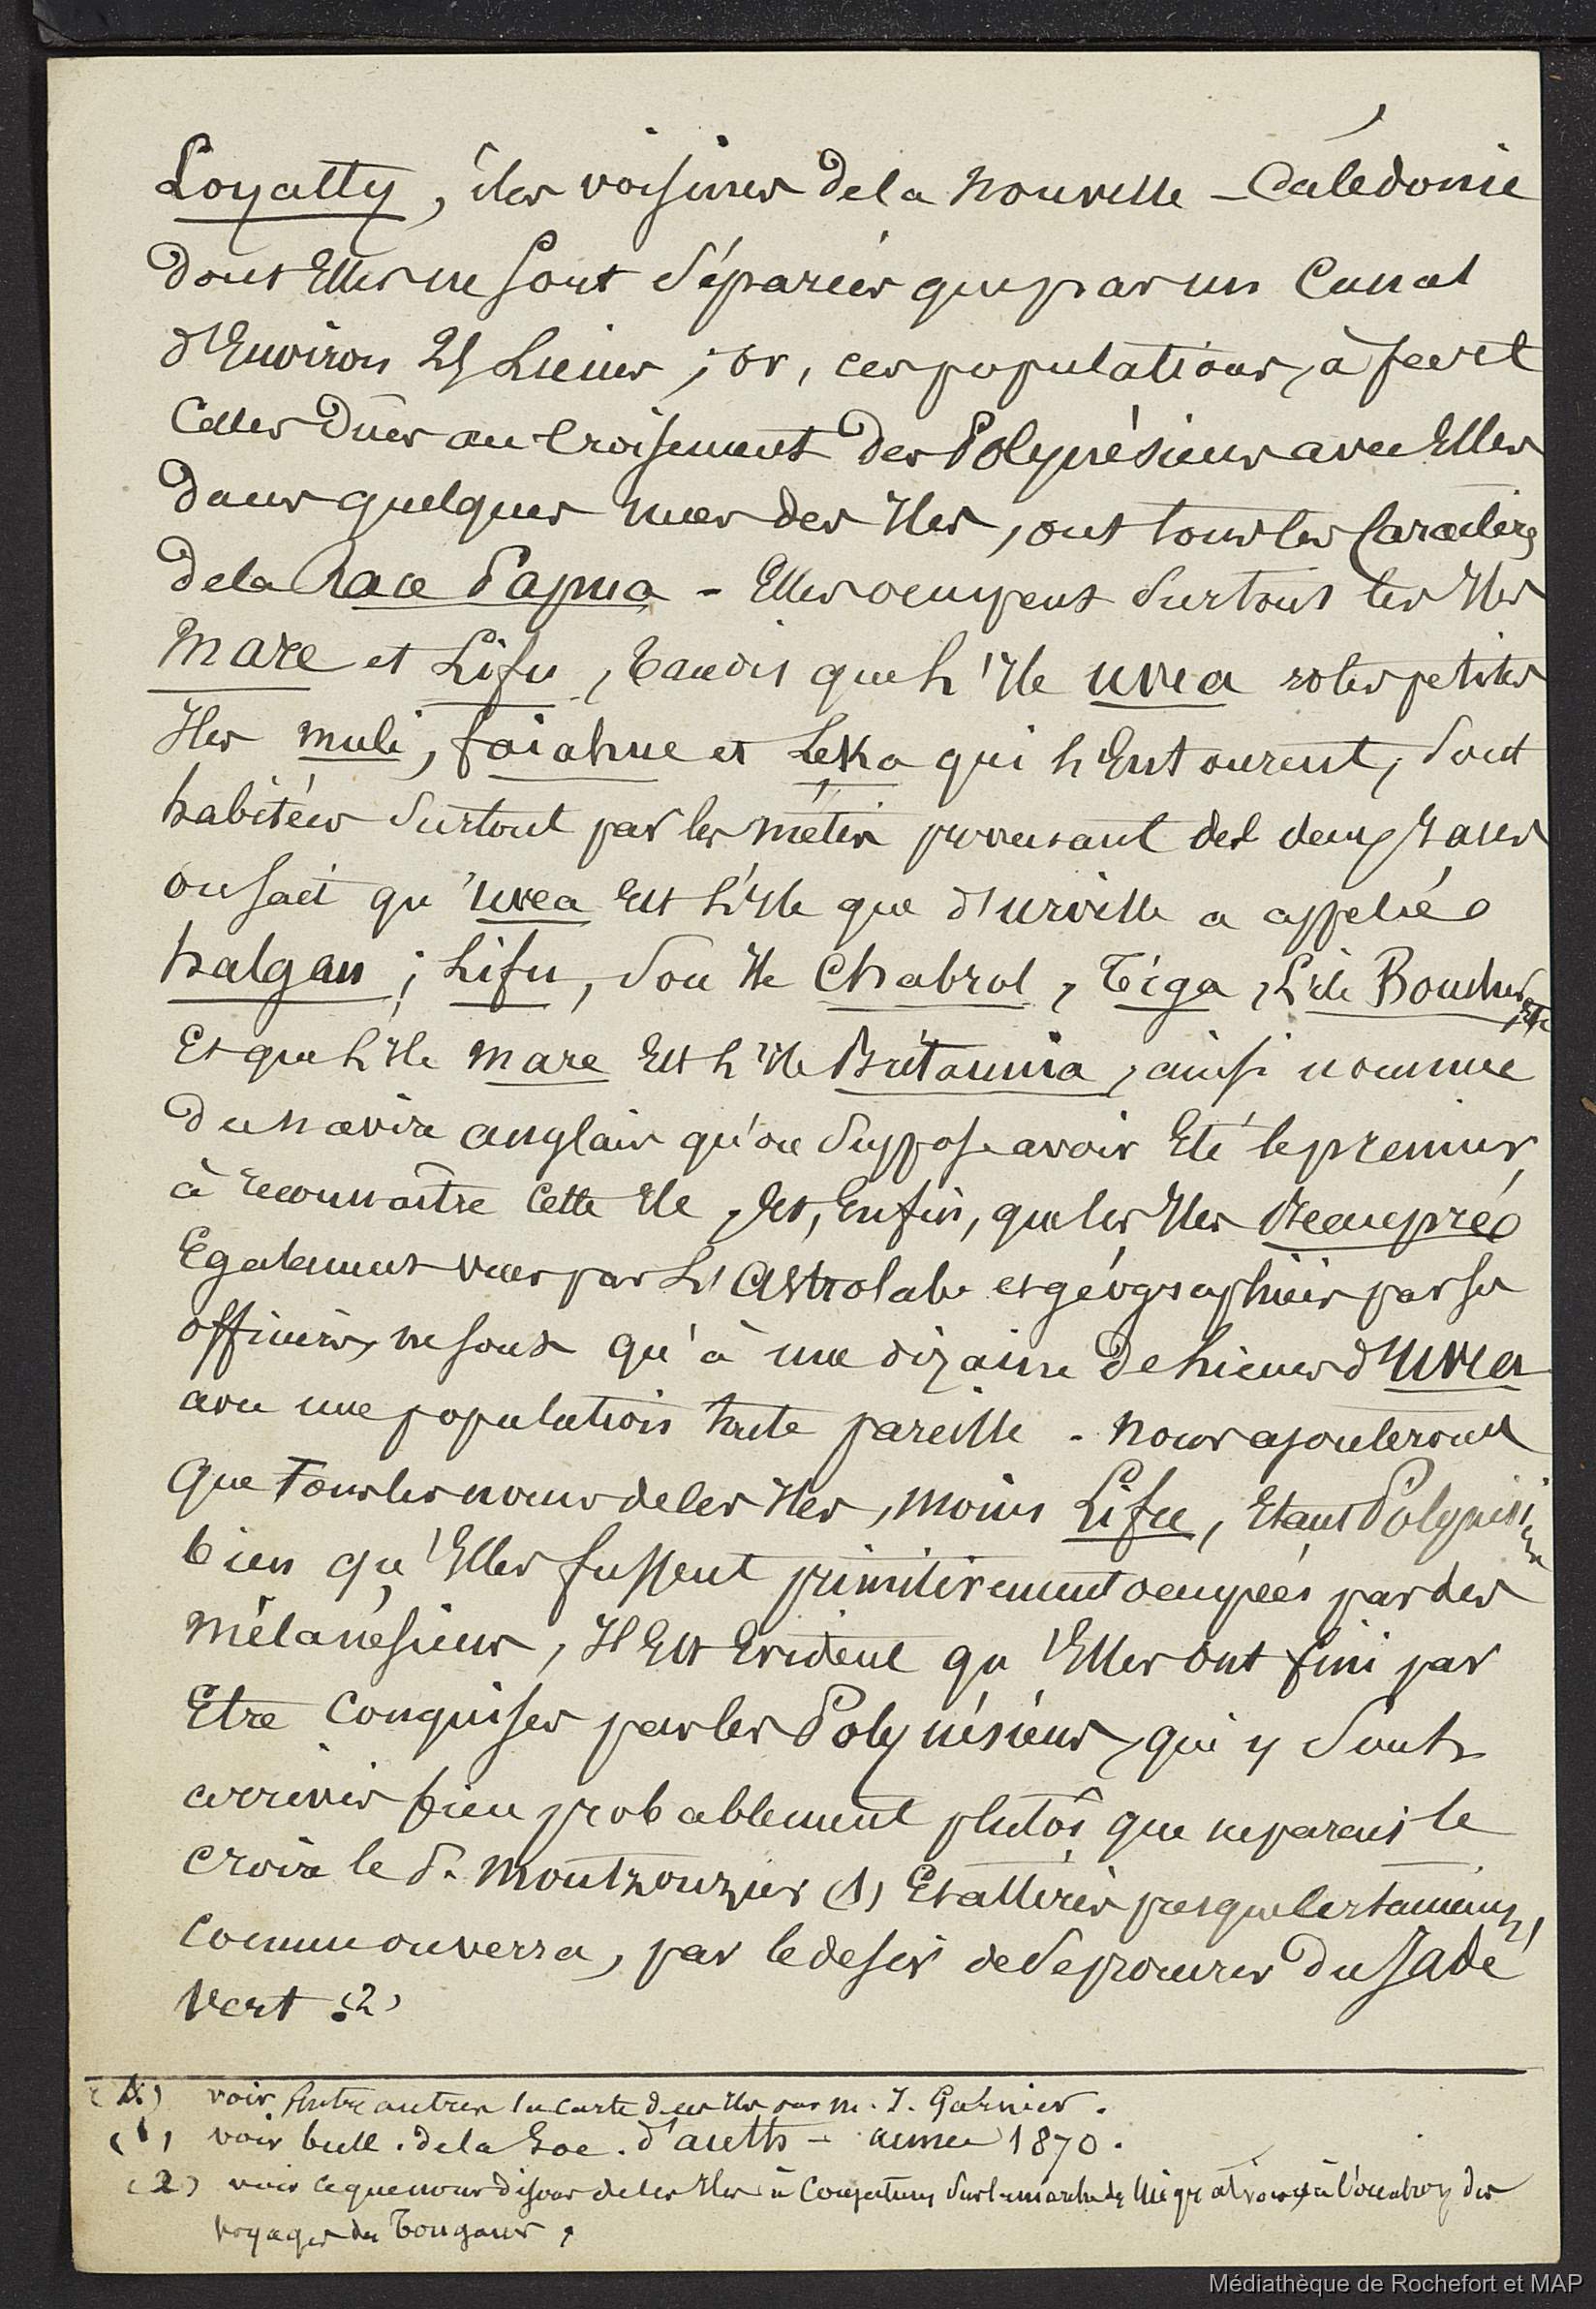 Loyalty, îles voisines de la nouvelle-Calédonie
dont Elles ne sont séparées que par un Canal
d'Environ 25 Lieues ; or, ces populations, à part
Celles dûes au Croisement des Polynésiens avec Elles
dans quelques unes des Iles, ont tous les Caractères
de la Race Papua - Elles occupent surtout les Iles
Mare et Lifu, tandis que l'Ile uvea et les petites
Iles muli, faiahue et Leka qui l'Entourent, sont
habitées surtout par les métis provenant des deux races
on sait qu'uvea Est l'Ile que d'urville a appelée
halgan ; Lifu, son Ile Chabrol, Tiga, L'ile Boucher, Etc
Et que l'Ile mare Est l'Ile Britannia, ainsi nommée
du navire anglais qu'on suppose avoir Eté le premier,
à reconnaître Cette Ile, Et, Enfin, que les Iles Beaupré
Egalement vues par L'Astrolabe et géographiées par ses
officiers, ne sont qu'à une dizaine de Lieues d'uvea
avec une population toute pareille - nous ajouterons
que Tous les noms de ces Iles, moins Lifu, Etant Polynésiens
bien qu'Elles fussent primitivement occupées par des
Mélanésiens, Il Est Evident qu'Elles ont fini par
Etre Conquises par les Polynésiens, qui y sont
arrivés bien probablement plutôt que ne parait le
croire le P. Montrouzier (1) Et attirés presque Certainement,
comme on verra, par le desir de se procurer du Jade
vert (2)
voir Entre autres la carte de ces Iles par M. J. Garnier.
(1) voir bull. de la Soc. d'aeth - année 1870.
(2) voir ce que nous disons de ces Iles à Conjectures sur la marche des Migrations, à l'occasion des
voyages des Tongans.
Médiathèque de Rochefort et MAP